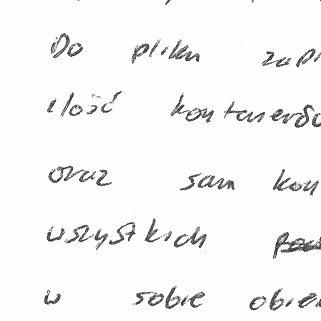 Do pliku zapi
ilość kontenerów
oraz sam kon
wszystkich
w sobie obie